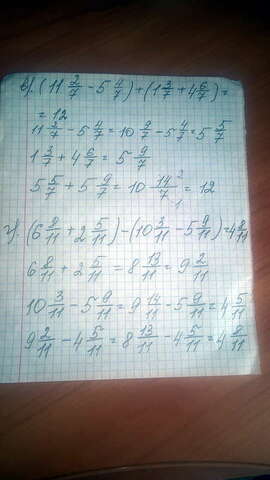 в) (11 2/7 - 5 4/7) + (1 3/7 + 4 6/7) =
= 12
11 2/7 - 5 4/7 = 10 9/7 - 5 4/7 = 5 5/7
1 3/7 + 4 6/7 = 5 9/7
5 5/7 + 5 9/7 = 10 14/7 2 1 = 12
г) (6 8/11 + 2 5/11) - (10 3/11 - 5 9/11) = 4 8/11
6 8/11 + 2 5/11 = 8 13/11 = 9 2/11
10 3/11 - 5 9/11 = 9 14/11 - 5 9/11 = 4 5/11
9 2/11 - 4 5/11 = 8 13/11 - 4 5/11 = 4 8/11